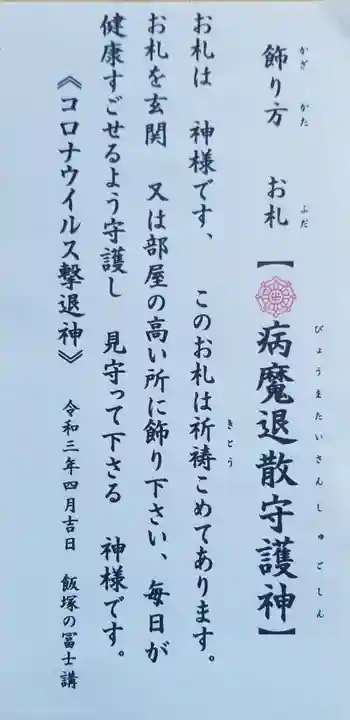 飾り方 お札【病魔退散守護神】
かざ かた ふだ びょうまたいさんしゅごしん
お札は 神様です、 このお札は祈祷こめてあります。
きとう
お札を玄関 又は部屋の高い所に飾り下さい、毎日が
健康すごせるよう守護し 見守って下さる 神様です。
《コロナウイルス撃退神》 令和三年四月吉日 飯塚の冨士講